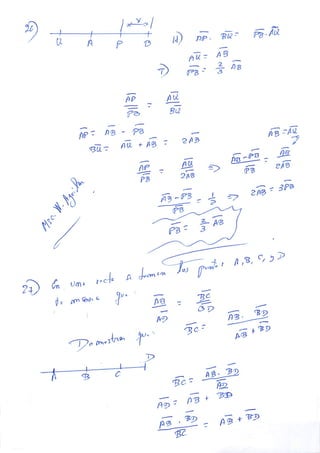 26)
x
U A P B
H) AP . BU = PB . AU
AU = AB
T) PB = 2/3 AB
AP/PB = AU/BU
AP = AB - PB
BU = AU + AB = 2AB
AB = AU
AP/PB = AU/2AB => AB-PB/PB = AB/2AB
AB-PB/PB = 1/2 => 2AB = 3PB
PB = 2/3 AB
27) En una recta se toman los puntos A, B, C, y D
de manera que: AB/AD = BC/BD
Demostrar que: BC = AB . BD/AB + BD
A B C D
BC = AB . BD/AD
AD = AB + BD
AB . BD/BC = AB + BD